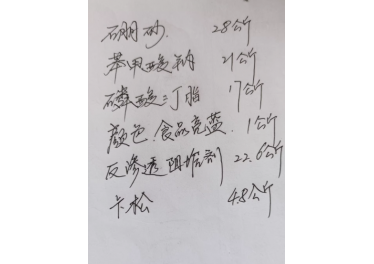 硼砂. 28公斤
苯甲酸钠 21公斤
磷酸三丁脂 17公斤
颜色.食品亮蓝. 1公斤
反渗透阻垢剂 22.6公斤
卡松 48公斤